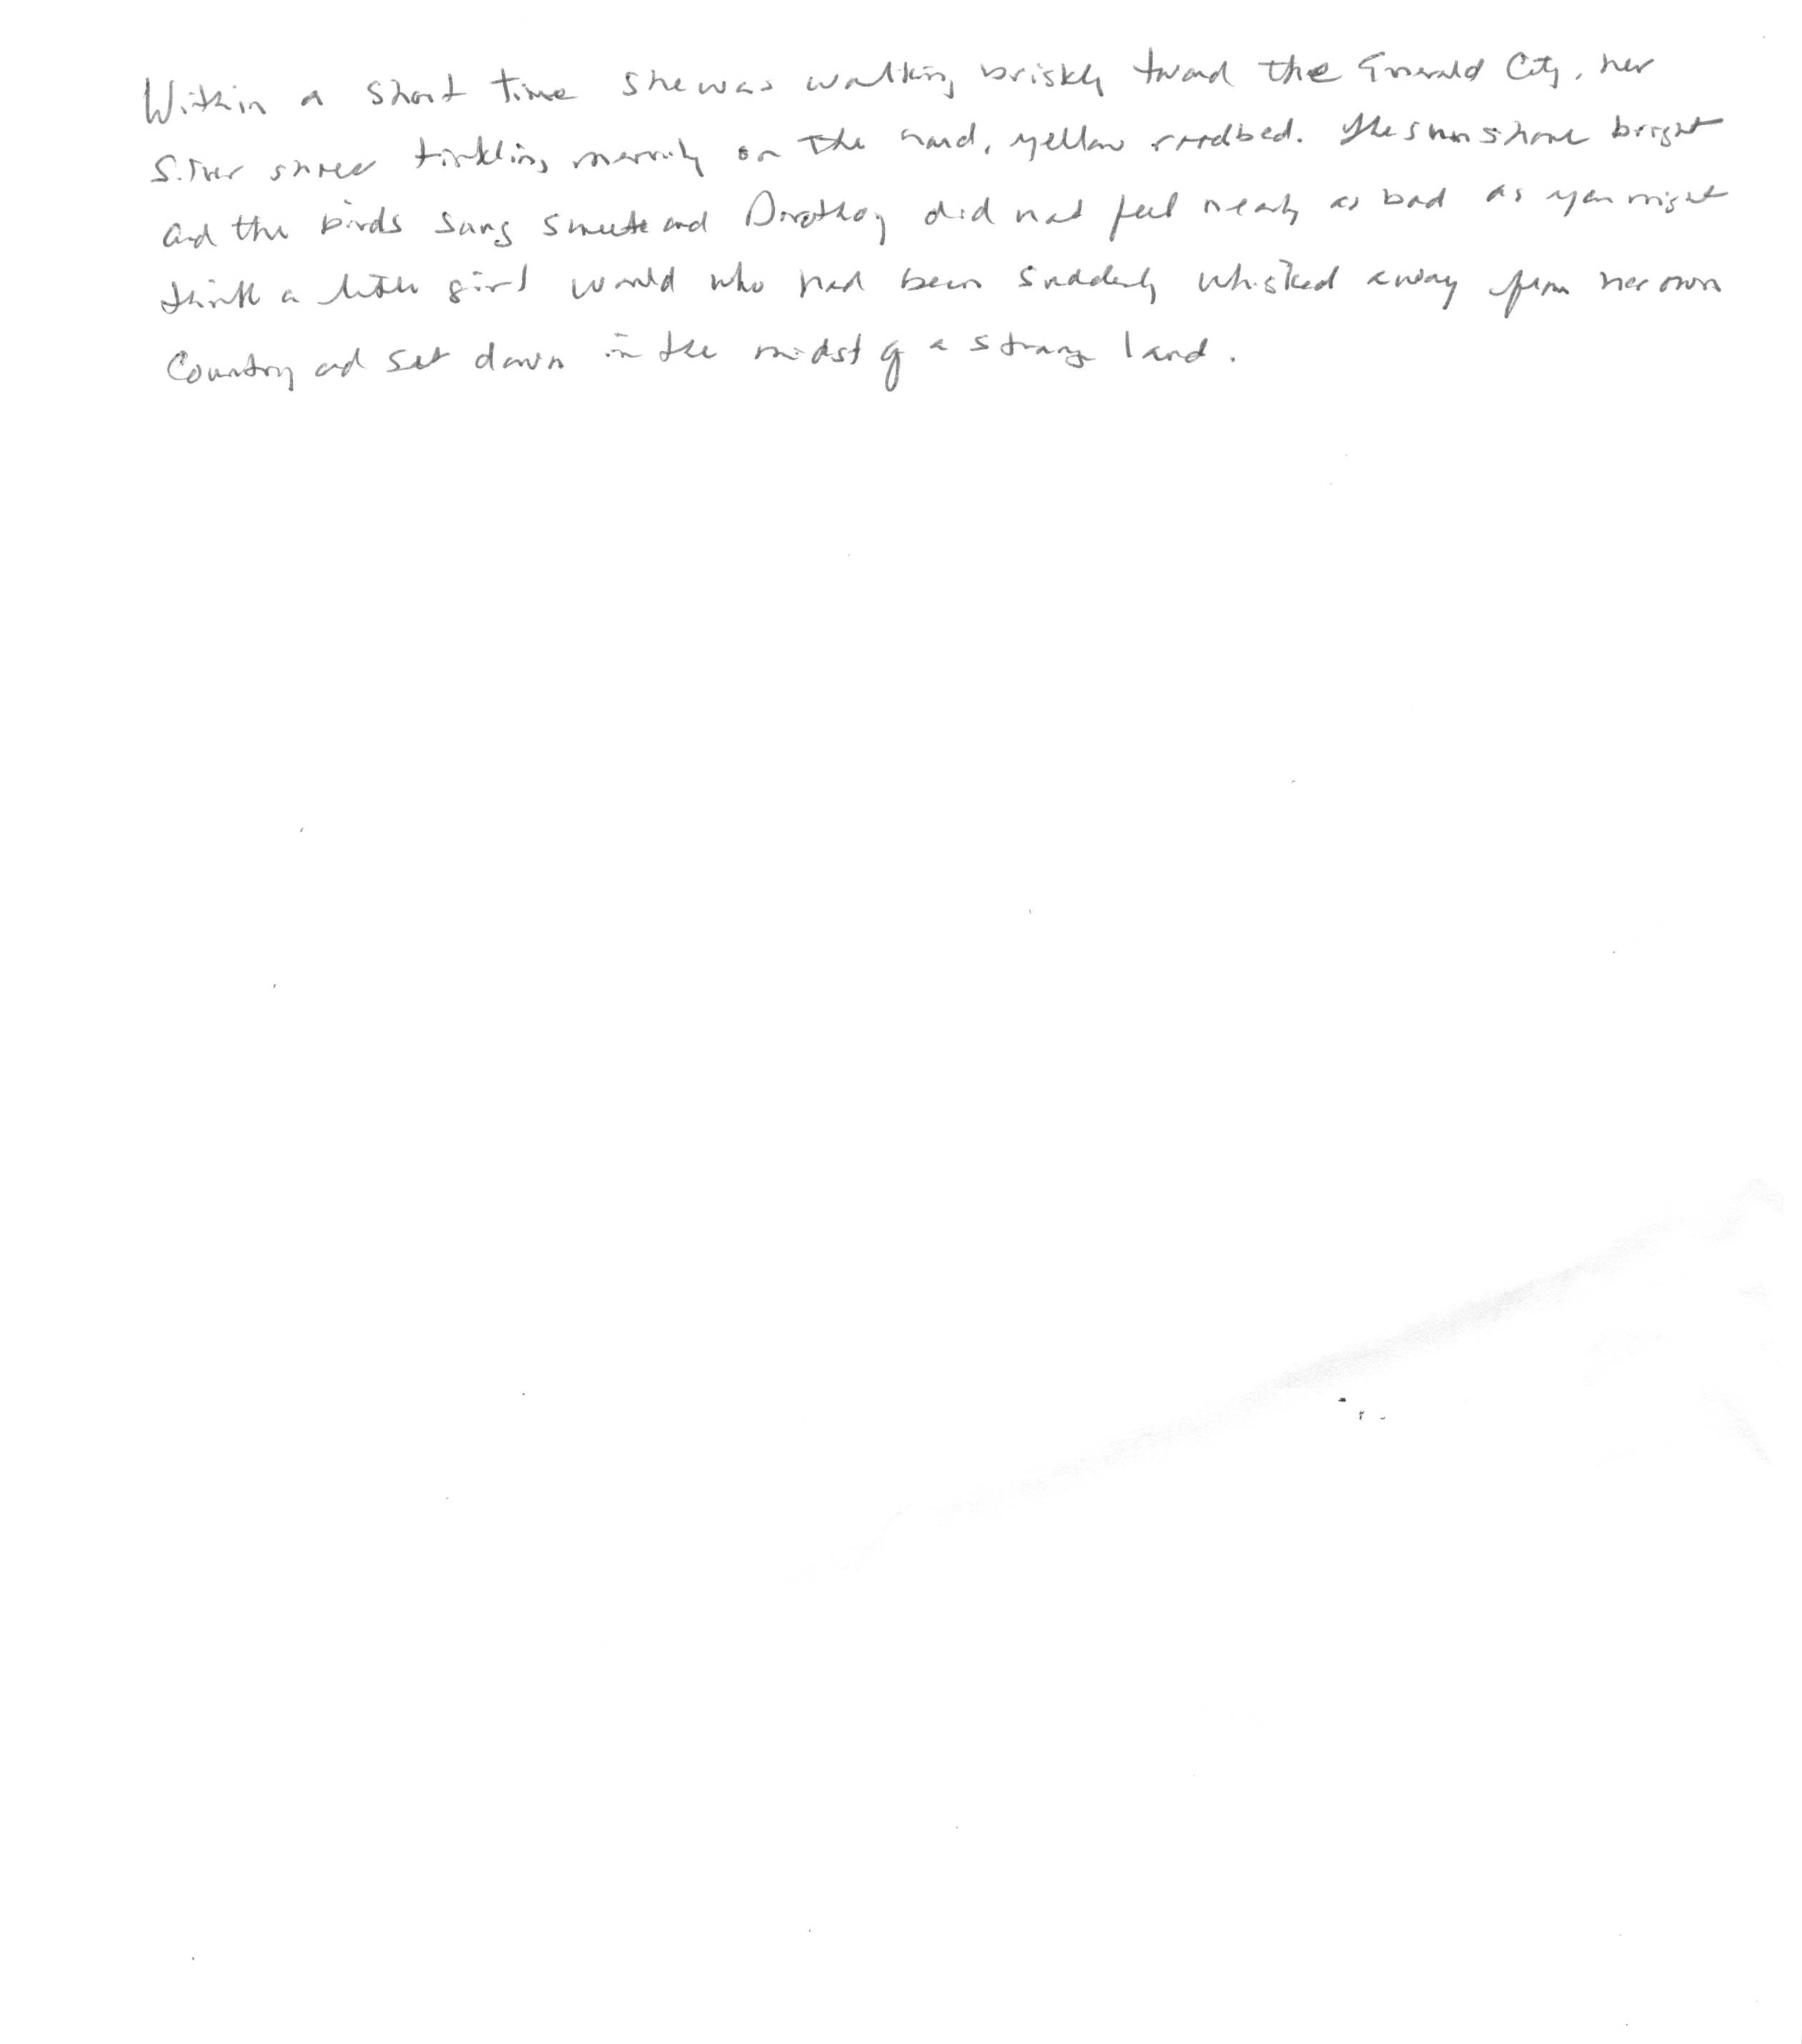 Within a short time she was walking briskly toward the Emerald City, her
Silver shoes tinkling merrily on the hard, yellow roadbed. The sun shone bright
and the birds sang sweet and Dorothy did not feel nearly as bad as you might
think a little girl would who had been suddenly whisked away from her own
Country and set down in the midst of a strange land.